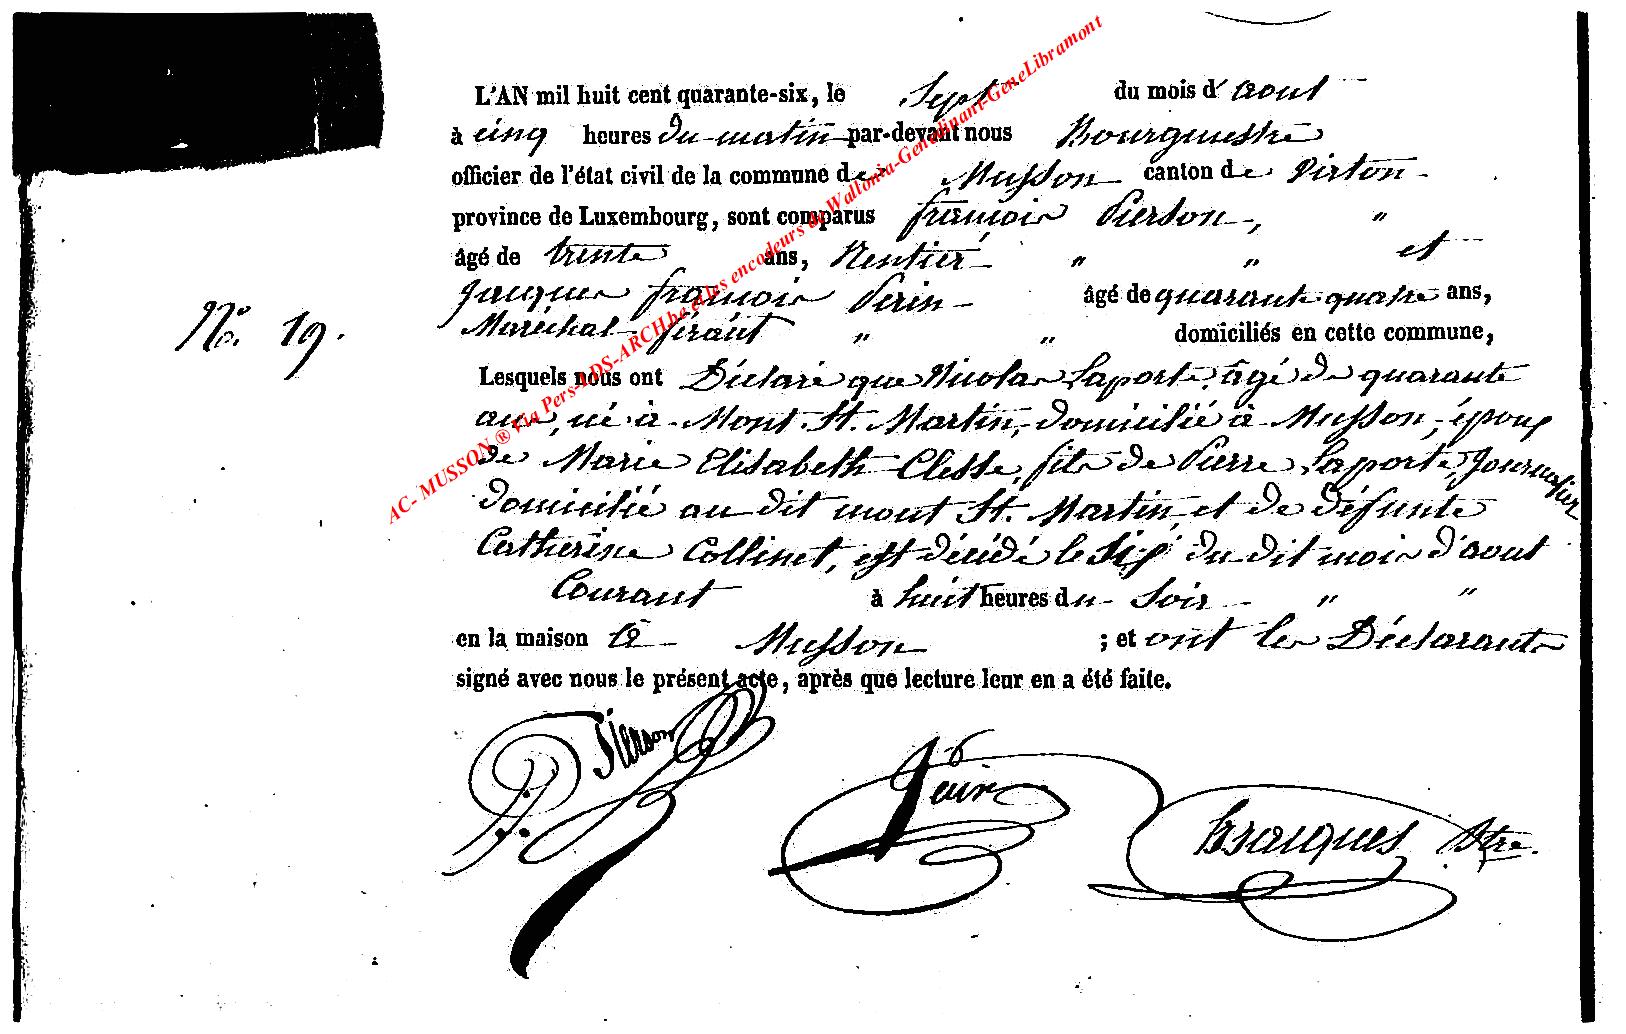 L'AN mil huit cent quarante-six, le Sept du mois d'aout
à cinq heures du matin par-devant nous Bourgmestre
officier de l'état civil de la commune de Musson canton de Virton
province de Luxembourg, sont comparus françois Pierson, "
âgé de trente ans, Rentier " " et
Jacques françois Perin âgé de quarante quatre ans,
No. 19.
Maréchal férant " " domiciliés en cette commune,
Lesquels nous ont Déclaré que Nicolas Laporte, âgé de quarante
ans, né à Mont St. Martin, domicilié à Musson, époux
de Marie Elisabeth Clesse, fils de Pierre Laporte, Journalier
domicilié au dit mont St. Martin et de défunte
Catherine Collinet, est décédé le Six du dit mois d'aout
Courant à huit heures du Soir " "
en la maison à Musson ; et ont les Déclarants
signé avec nous le présent acte, après que lecture leur en a été faite.
Pierson Perin Bstre.
AC- MUSSON ® Via Pers-LDS-ARCH.be et les encodeurs de Wallonia-Genedinant-GeneLibramont